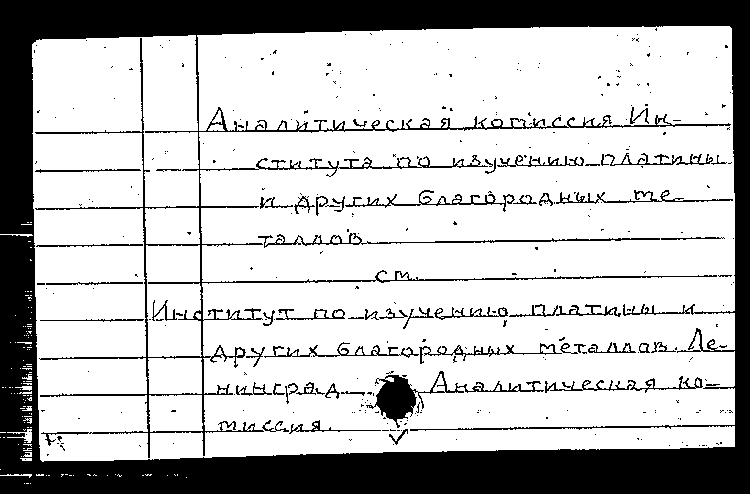 Аналитическая комиссия Ин-
ститута по изучению платины
и других благородных ме-
таллов.
см.
Институт по изучению платины и
других благородных металлов. Ле-
нинград. Аналитическая ко-
миссия.